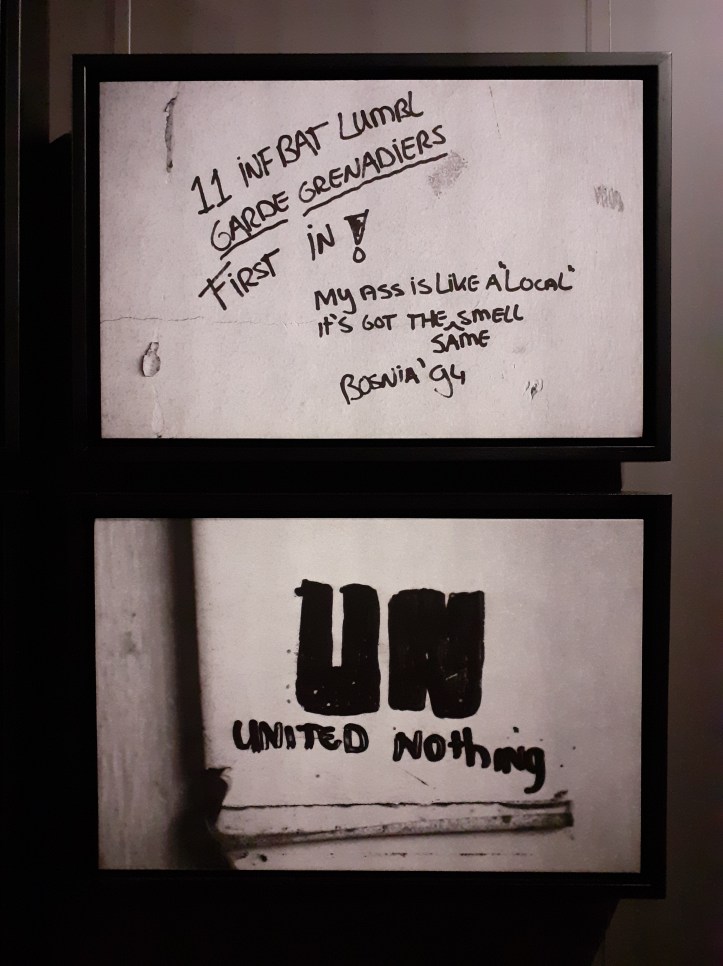 11 iNF BAT LUMBL
GARDE GRENADIERS
FiRST iN !
My ASS is LiKE A "LOCAL"
iT'S GOT THE SMELL
SAME
BOSNiA '94
UN
UNiTED NOthing